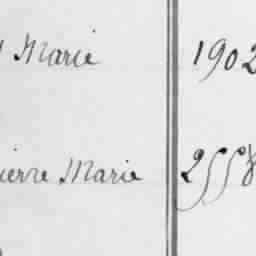 Marie 1902
ierre Marie 2558